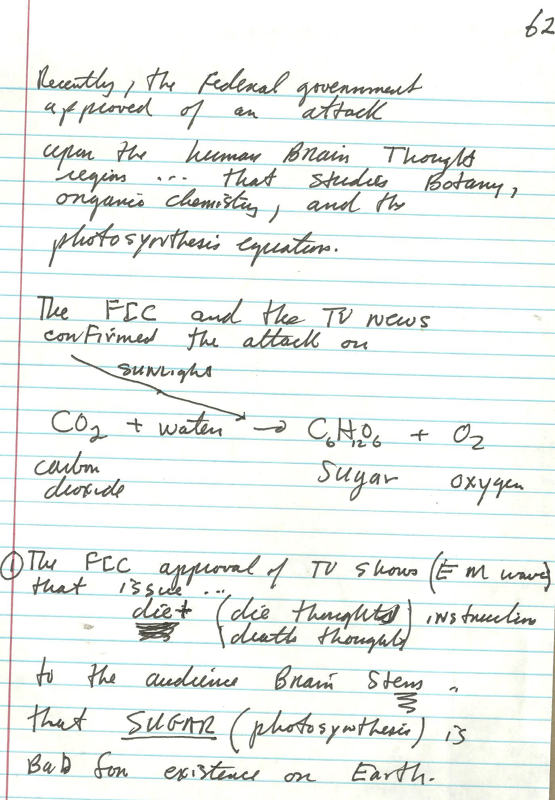 62
Recently, the Federal government
approved of an attack
upon the human Brain Thought
region ... that studies Botany,
organic chemistry, and the
photosynthesis equation.
The FCC and the TV news
confirmed the attack on
SUNLight
CO2 + water → C6H12O6 + O2
carbon Sugar oxygen
dioxide
① The FCC approval of TV shows (EM wave)
that issue ...
diet (die thoughts) instruction
(death thoughts)
to the audience Brain Stems ..
that SUGAR (photosynthesis) is
Bad for existence on Earth.